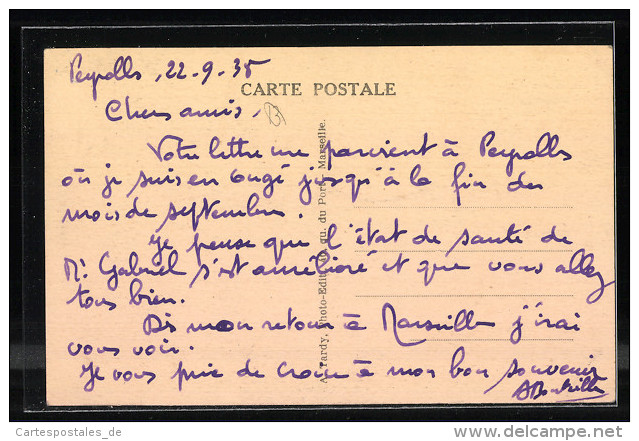 Peyrolles, 22-9-35
CARTE POSTALE
Chers amis,
Votre lettre me parvient à Peyrolles
où je suis en congé jusqu'à la fin du
mois de septembre.
Je pense que l'état de santé de
Mr Gabriel s'est amélioré et que vous allez
tous bien.
Dès mon retour à Marseille j'irai
vous voir.
Je vous prie de croire à mon bon souvenir
A. Tardy, Photo-Edit. qu. du Port, Marseille.
Cartespostales_de
www.delcampe.net